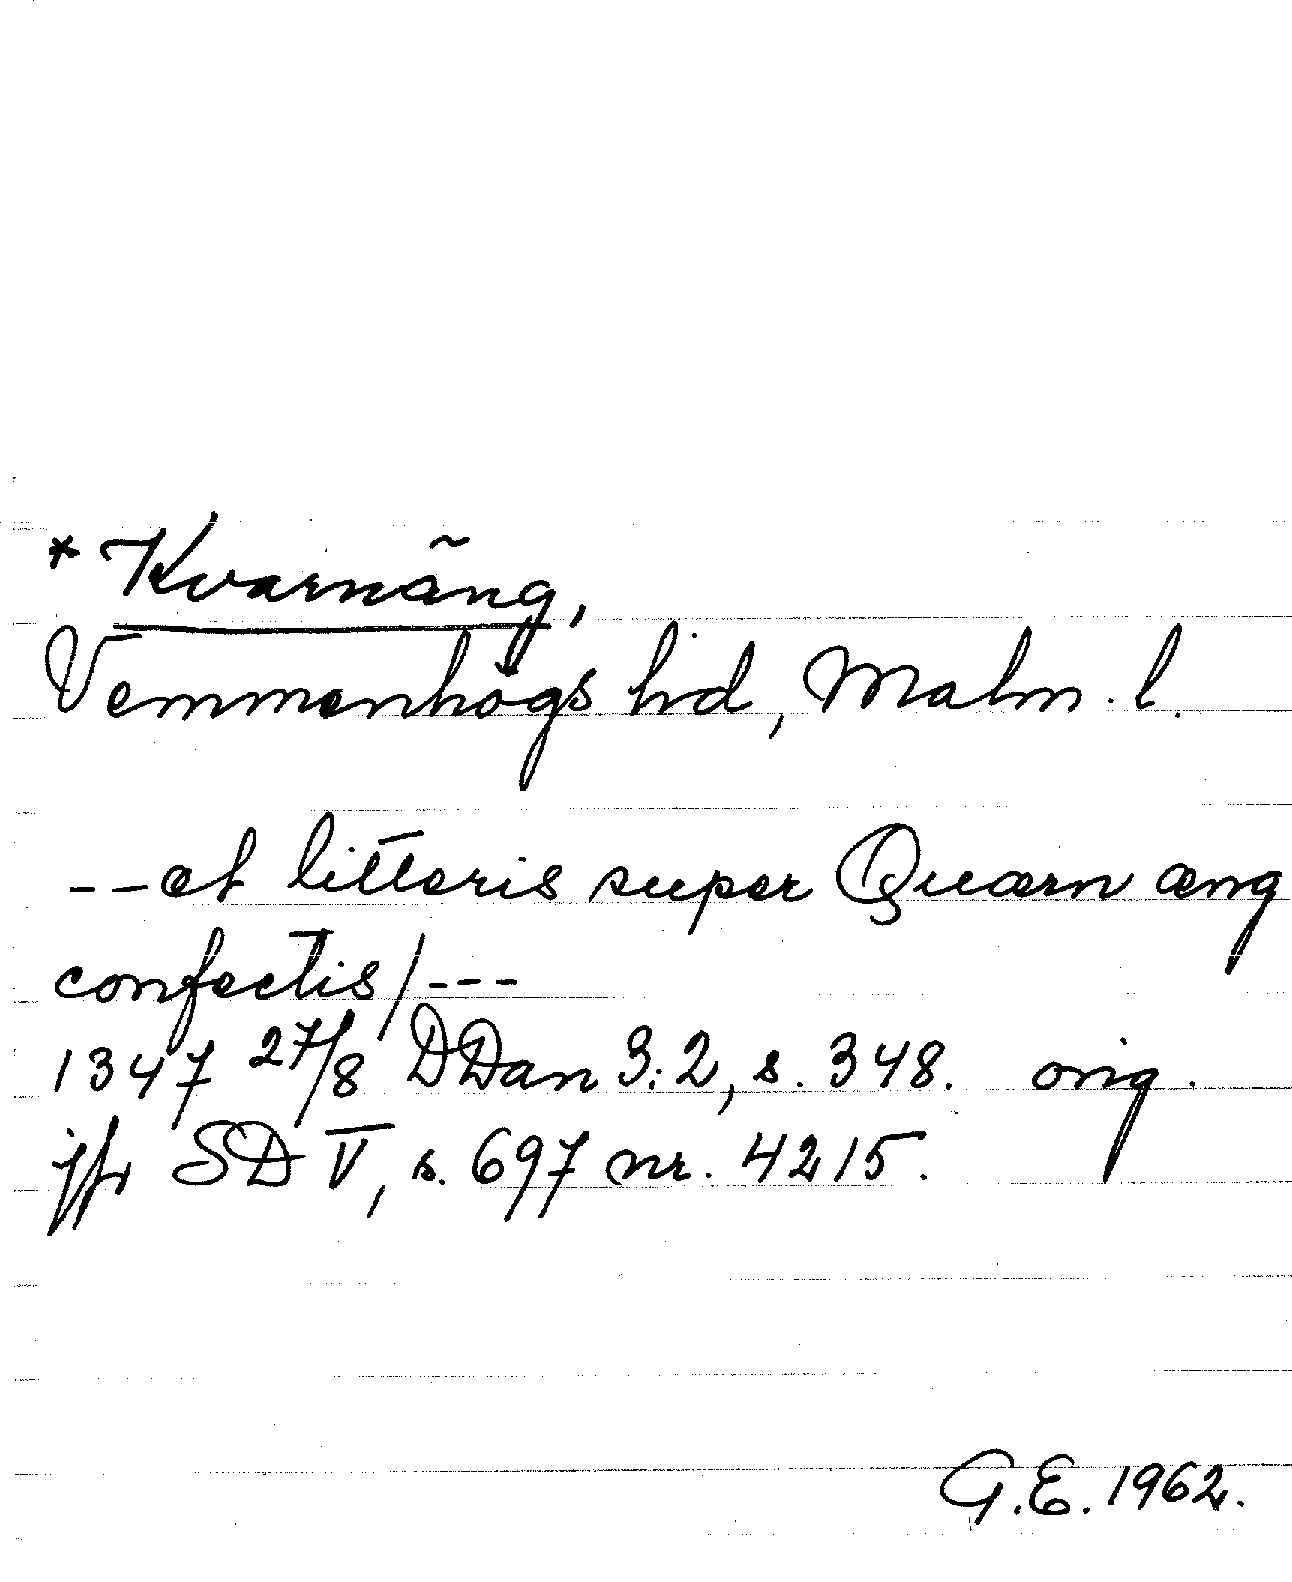 * Kvarnäng,
Vemmenhögs hd, Malm. l.
-- et litteris super Quærn æng
confectis/---
1347 27/8 DDan 3:2, s. 348. orig.
jfr SD V, s. 697 nr. 4215.
G.E. 1962.